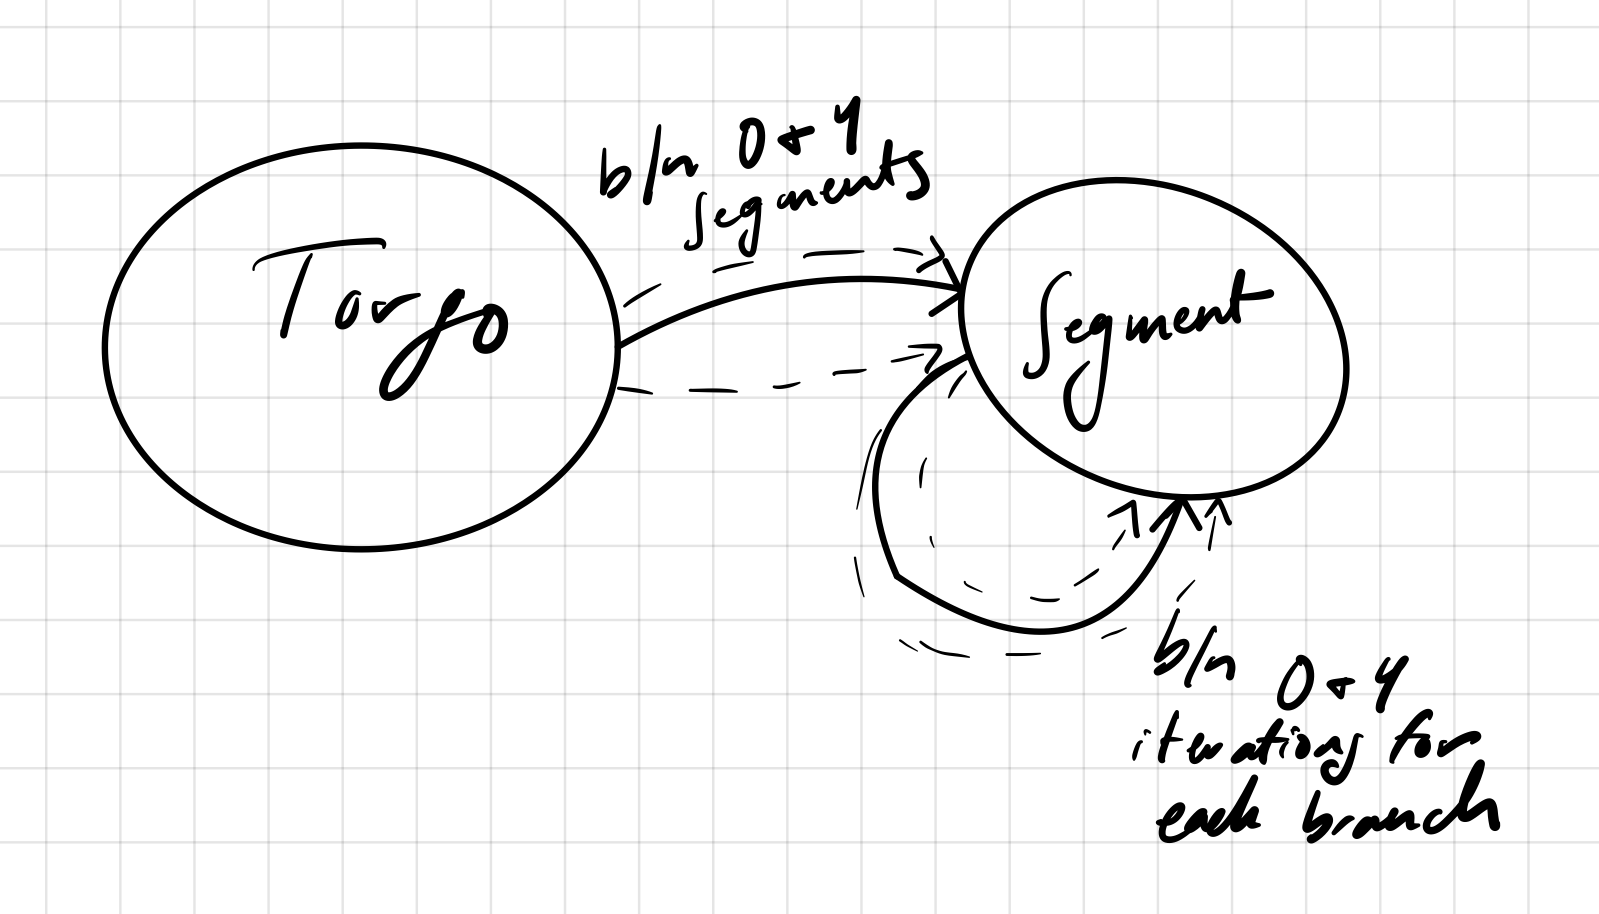 b/n 0 & 4
segments
Torso
Segment
b/n 0 & 4
iterations for
each branch